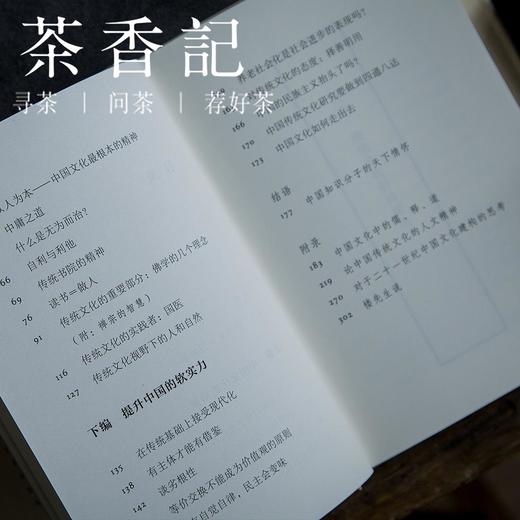 茶香記
寻茶 | 问茶 | 荐好茶
人为本——中国文化最根本的精神
中庸之道
什么是无为而治?
自利与利他
66 传统书院的精神
69 读书=做人
76 传统文化的重要部分:佛学的几个理念
91 (附:禅宗的智慧)
116 传统文化的实践者:国医
127 传统文化视野下的人和自然
下编 提升中国的软实力
135 在传统基础上接受现代化
138 有主体才能有借鉴
142 谈劣根性
等价交换不能成为价值观的原则
有自觉自律,民主会变味
养老社会化是社会进步的表现吗?
传统文化的态度:择善明用
166 的民族主义抬头了吗?
170 中国传统文化研究要做到四通八达
173 中国文化如何走出去
结语
177 中国知识分子的天下情怀
附录
183 中国文化中的儒、释、道
219 论中国传统文化的人文精神
270 对于二十一世纪中国文化建构的思考
302 楼先生说